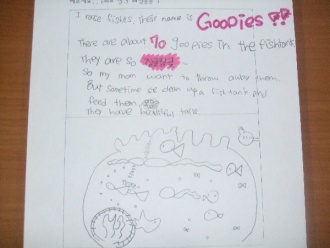 I have fishes, their name is Goopies ??
There are about 70 goopies in the fishtank
They are so
So my mom want to throw away them.
But sometime we clean up a fishtank and
food them.
They have tails.